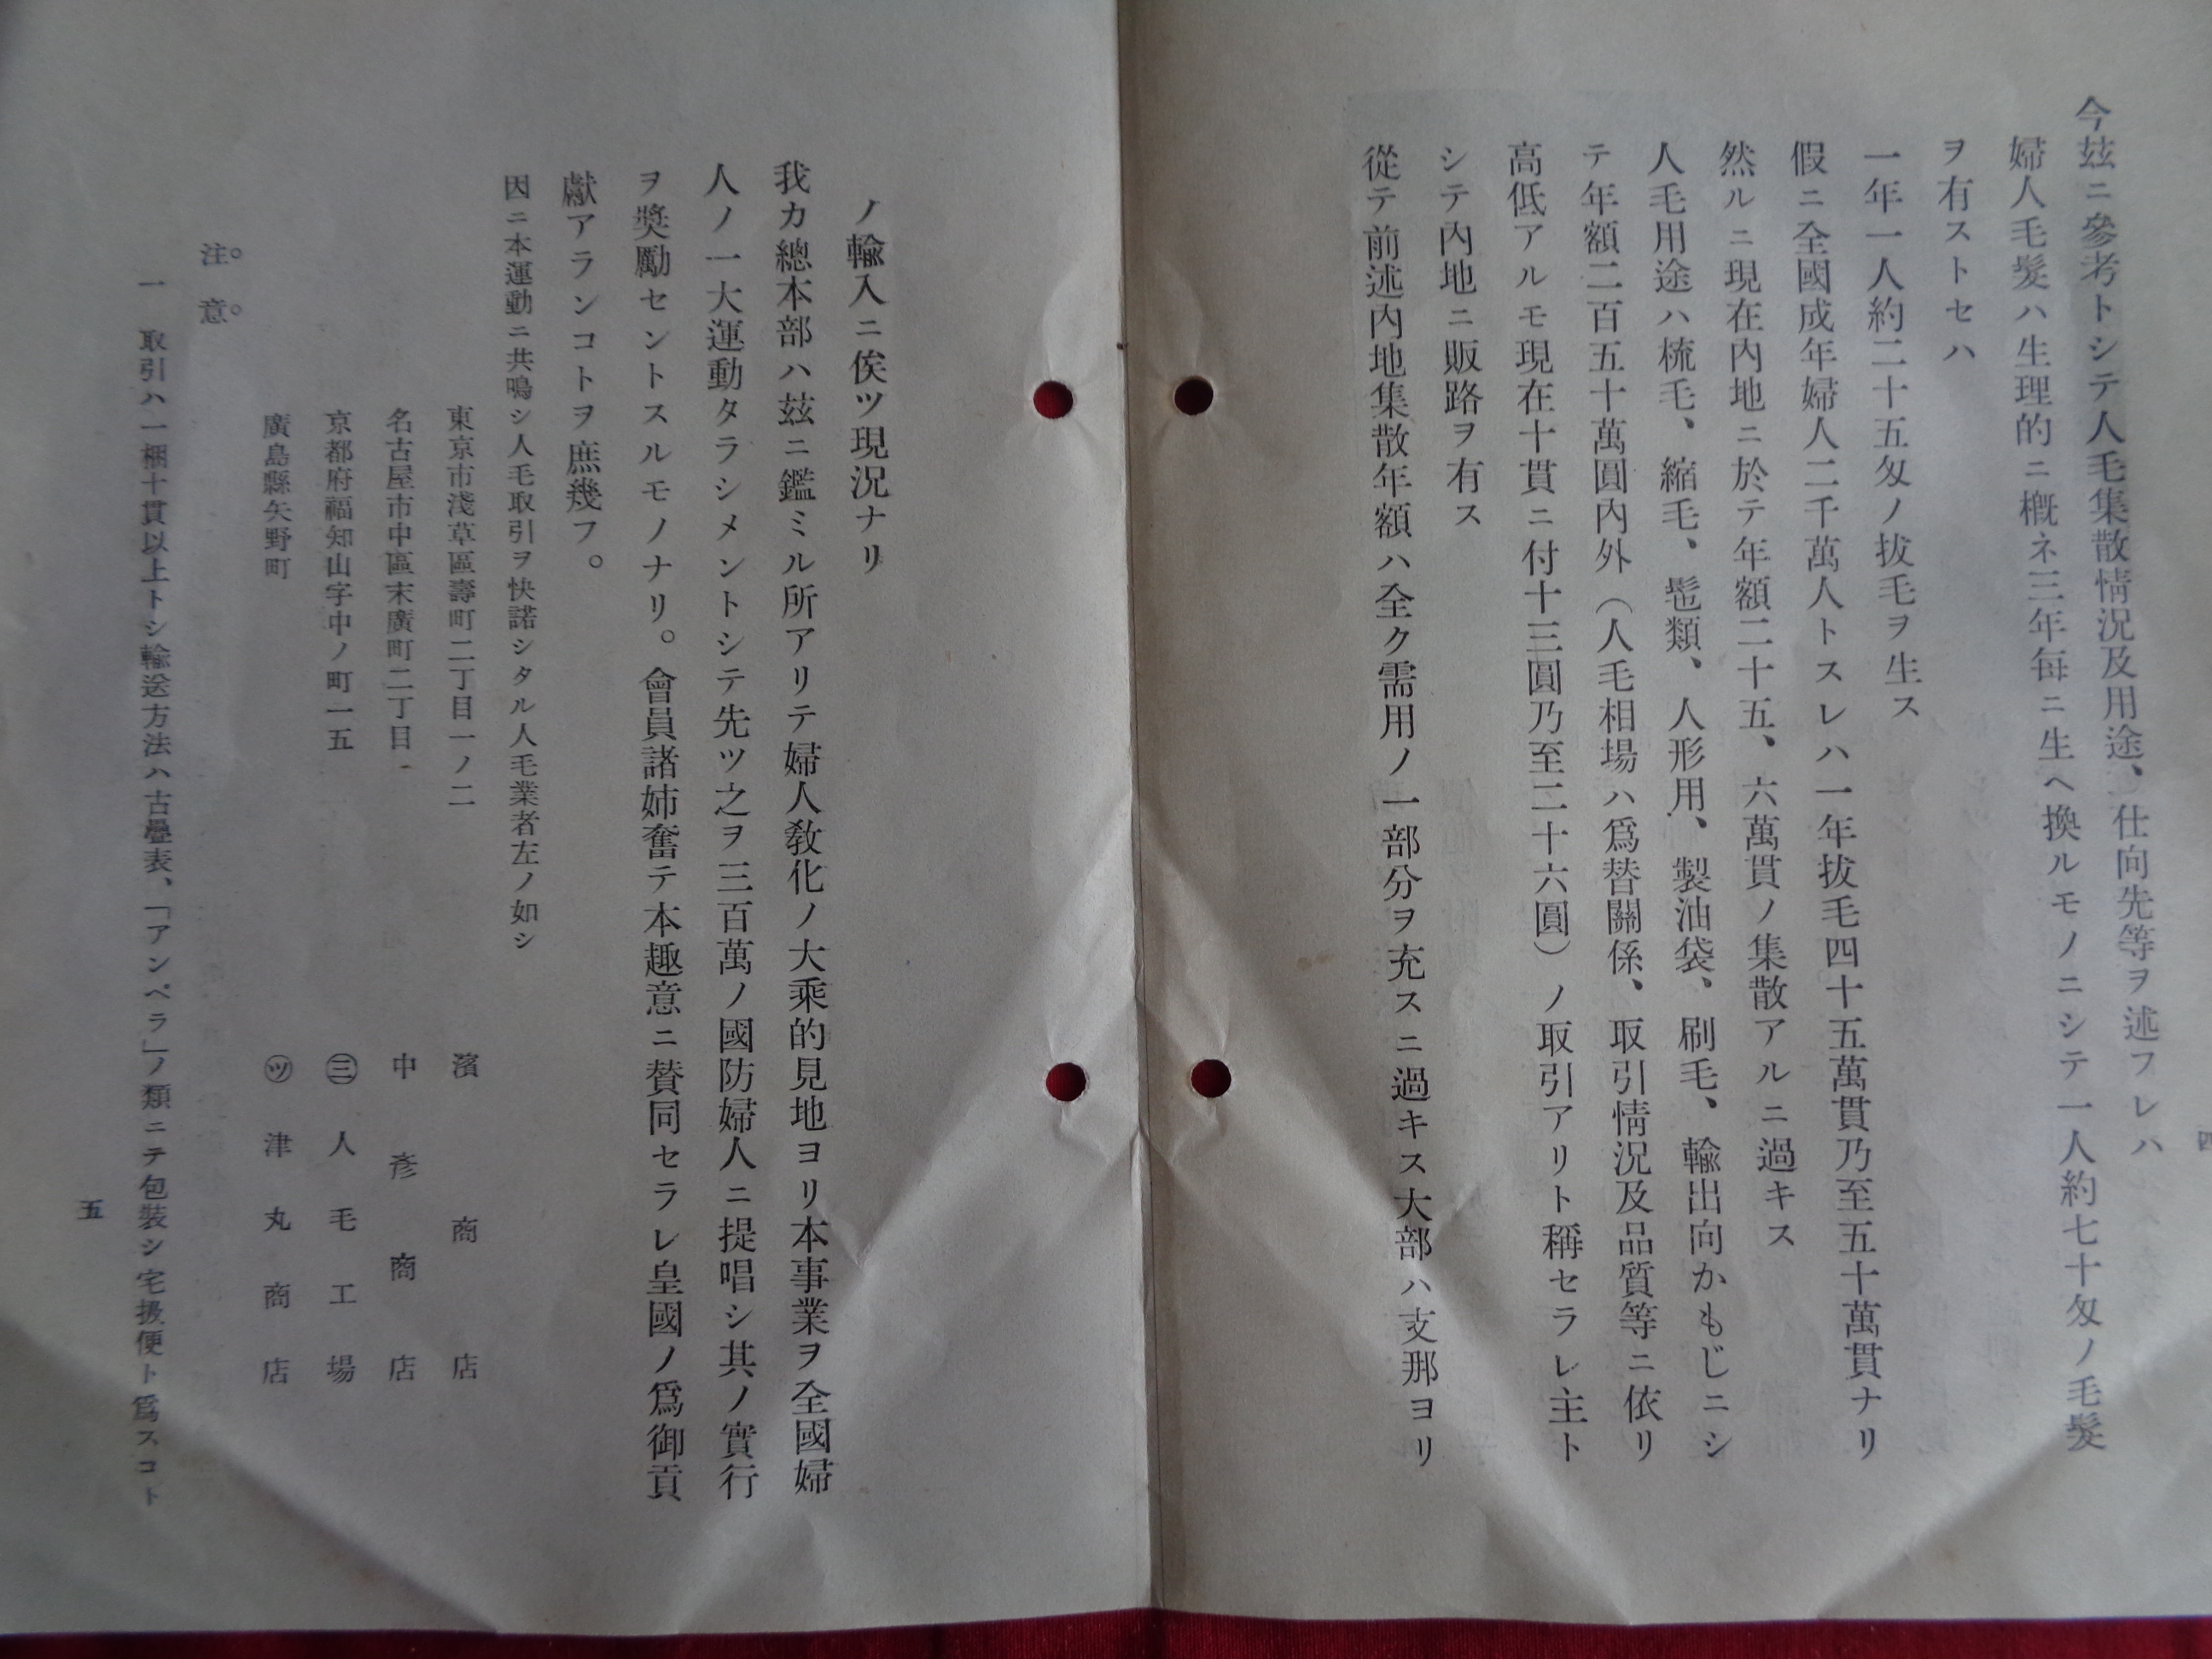 今玆ニ參考トシテ人毛集散情況及用途、仕向先等ヲ述フレハ
婦人毛髪ハ生理的ニ槪ネ三年每ニ生ヘ換ルモノニシテ一人約七十匁ノ毛髪
ヲ有ストセハ
一年一人約二十五匁ノ拔毛ヲ生ス
假ニ全國成年婦人二千萬人トスレハ一年拔毛四十五萬貫乃至五十萬貫ナリ
然ルニ現在內地ニ於テ年額二十五、六萬貫ノ集散アルニ過キス
人毛用途ハ梳毛、縮毛、髢類、人形用、製油袋、刷毛、輸出向かもじニシ
テ年額二百五十萬圓內外（人毛相場ハ爲替關係、取引情況及品質等ニ依リ
高低アルモ現在十貫ニ付十三圓乃至二十六圓）ノ取引アリト稱セラレ主ト
シテ內地ニ販路ヲ有ス
從テ前述內地集散年額ハ全ク需用ノ一部分ヲ充スニ過キス大部ハ支那ヨリ
四
ノ輸入ニ俟ツ現況ナリ
我カ總本部ハ玆ニ鑑ミル所アリテ婦人敎化ノ大乘的見地ヨリ本事業ヲ全國婦
人ノ一大運動タラシメントシテ先ツ之ヲ三百萬ノ國防婦人ニ提唱シ其ノ實行
ヲ奬勵セントスルモノナリ。會員諸姉奮テ本趣意ニ賛同セラレ皇國ノ爲御貢
獻アランコトヲ庶幾フ。
因ニ本運動ニ共鳴シ人毛取引ヲ快諾シタル人毛業者左ノ如シ
東京市淺草區壽町二丁目一ノ二 濱商店
名古屋市中區末廣町二丁目 中彥商店
京都府福知山字中ノ町一五 ㊂人毛工場
廣島縣矢野町 ㋡津丸商店
注意
一 取引ハ一梱十貫以上トシ輸送方法ハ古疊表、「アンペラ」ノ類ニテ包裝シ宅扱便ト爲スコト
五